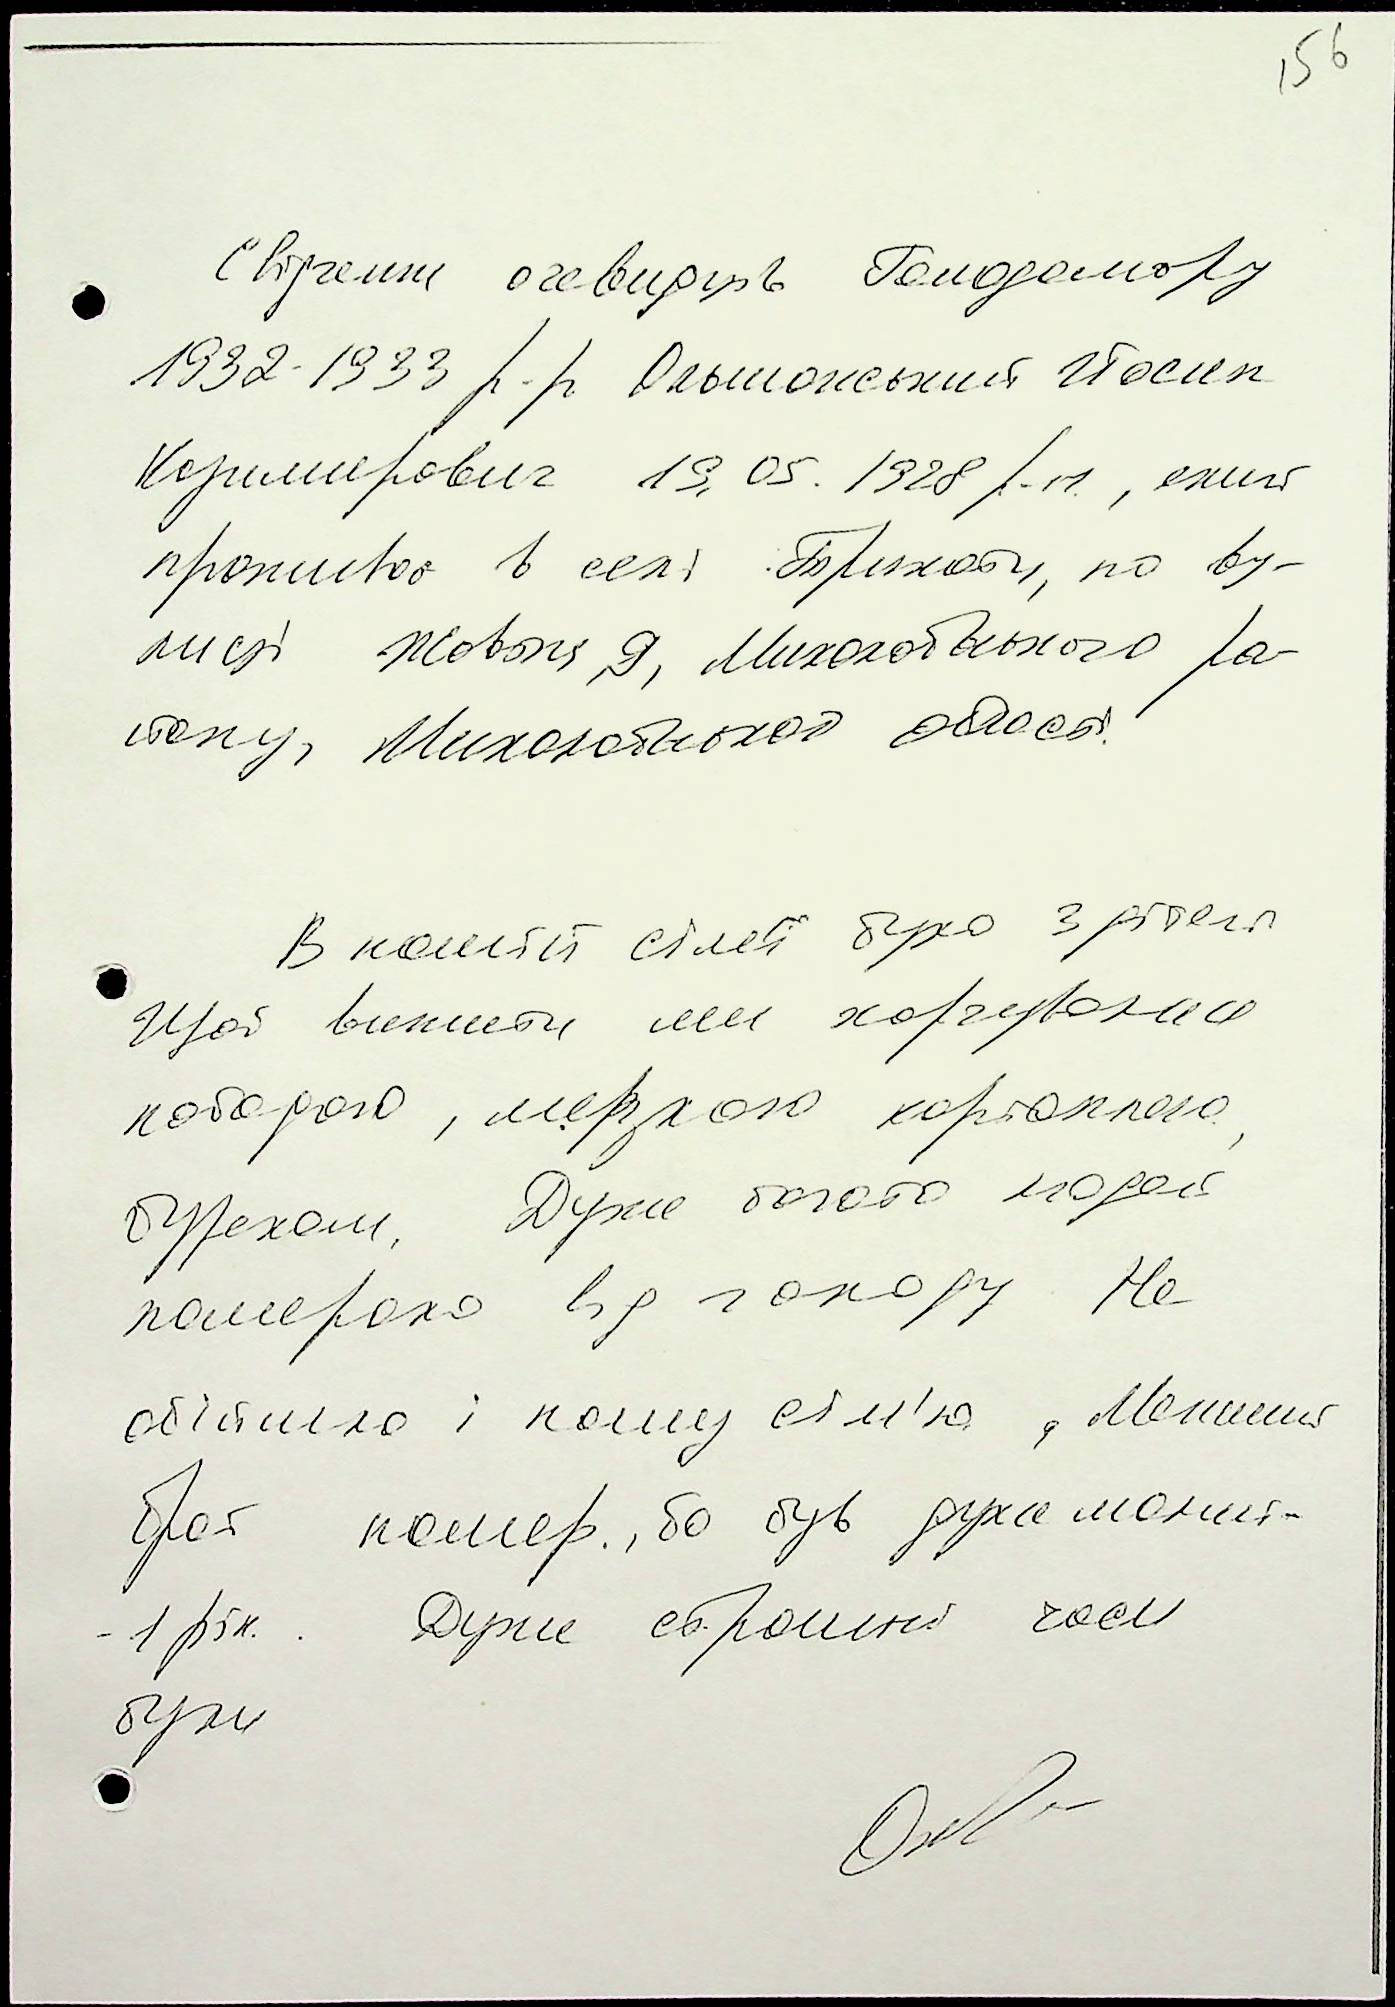 156
Свідчення очевидців Голодомору
1932-1933 р-р. Ольшанський Йосип
Казимирович 19.05.1928 р.н., який
проживає в селі Трихати, по ву-
лиці Жовтня, 9, Миколаївського ра-
йону, Миколаївської області.
В нашій сімї було 3 дітей
Щоб вижити ми харчувались
лободою, мерзлою картоплею,
буряком. Дуже багато людей
померало від голоду Не
обійшло і нашу сім'ю, Менший
брат помер., бо був дуже малий-
-1 рік. Дуже страшні часи
були